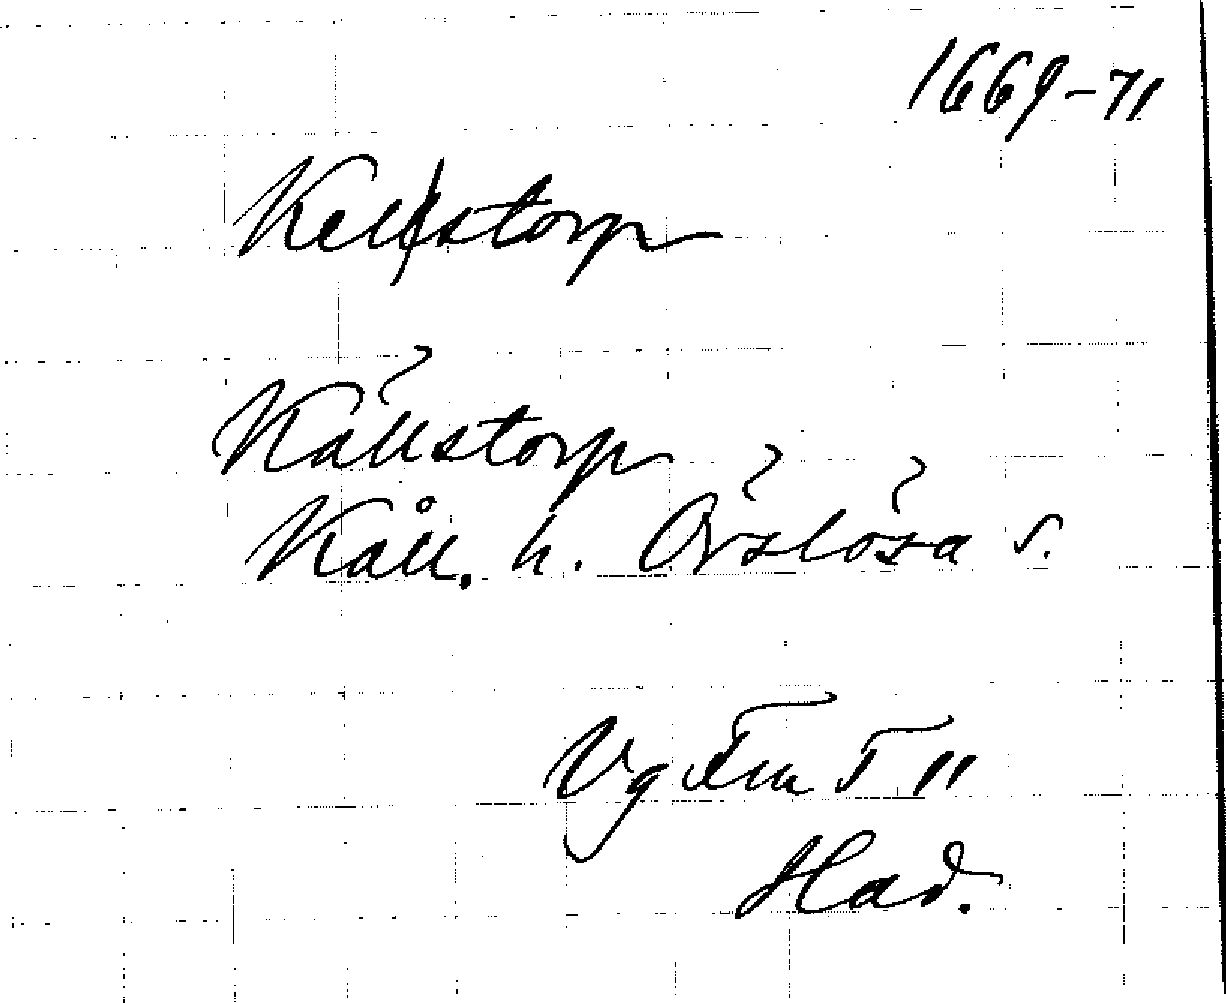 1669-71
Kellstorp
Källstorp
Kåll. h. Örslösa s.
Vg Fru T 11
Had.